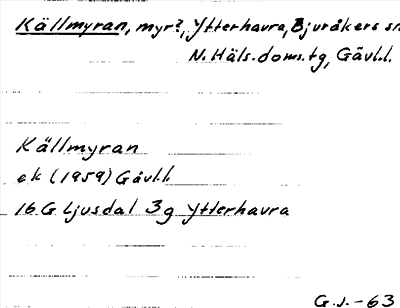 Källmyran, myr?, Ytterhavra, Bjuråkers sn
N. Häls. doms. tg, Gävl.l.
Källmyran
ek (1959) Gävl.l.
16 G Ljusdal 3g Ytterhavra
G.J.-63